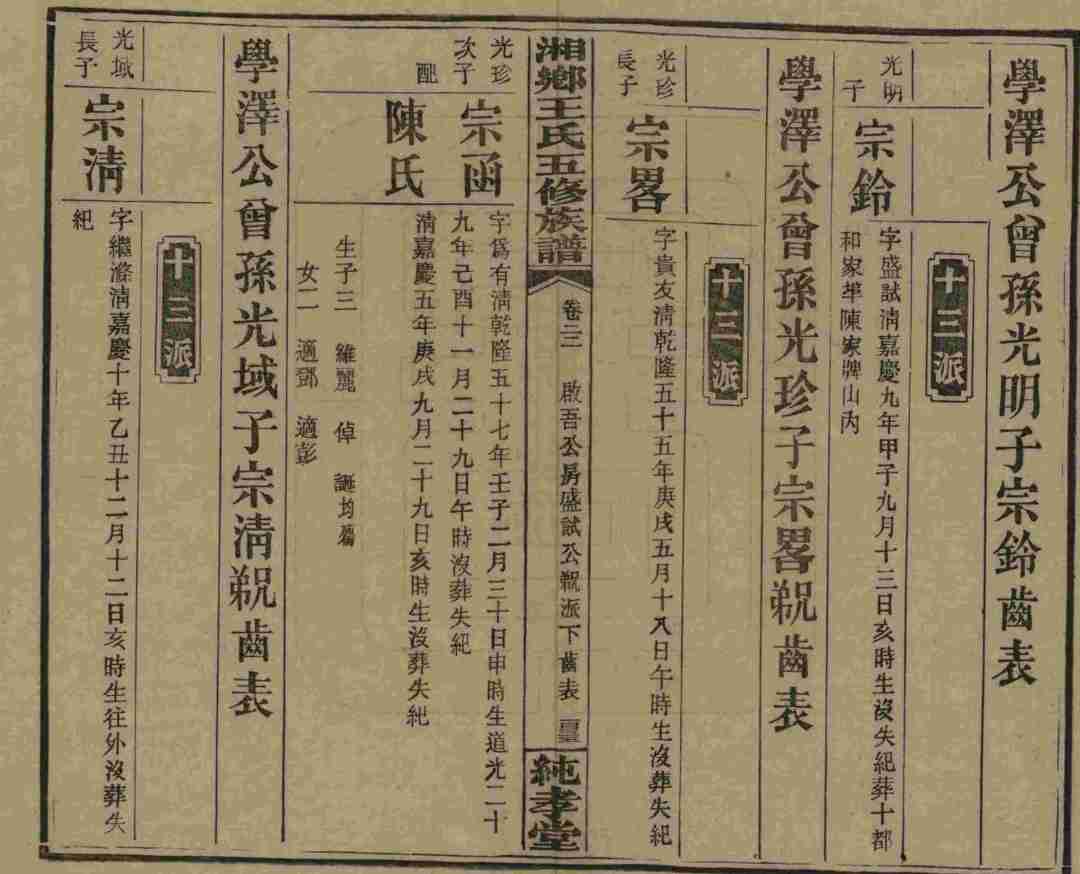 學澤公曾孫光明子宗鈴齒表
十三派
光明子
宗鈴
字盛試淸嘉慶九年甲子九月十三日亥時生沒失紀葬十都
和家埠陳家牌山內
學澤公曾孫光珍子宗畧𧠇齒表
十三派
光珍長子
宗畧
字貴友淸乾隆五十五年庚戌五月十八日午時生沒葬失紀
湘鄉王氏五修族譜
卷二二
啟吾公房盛試公𧠇派下齒表
純孝堂
光珍次子
宗函
字爲有淸乾隆五十七年壬子二月三十日申時生道光二十
九年己酉十一月二十九日午時沒葬失紀
配
陳氏
淸嘉慶五年庚戌九月二十九日亥時生沒葬失紀
生子三 維麗 倬 誕均殤
女二 適鄧 適彭
學澤公曾孫光域子宗淸𧠇齒表
十三派
光域長子
宗淸
字繼滌淸嘉慶十年乙丑十二月十二日亥時生往外沒葬失
紀